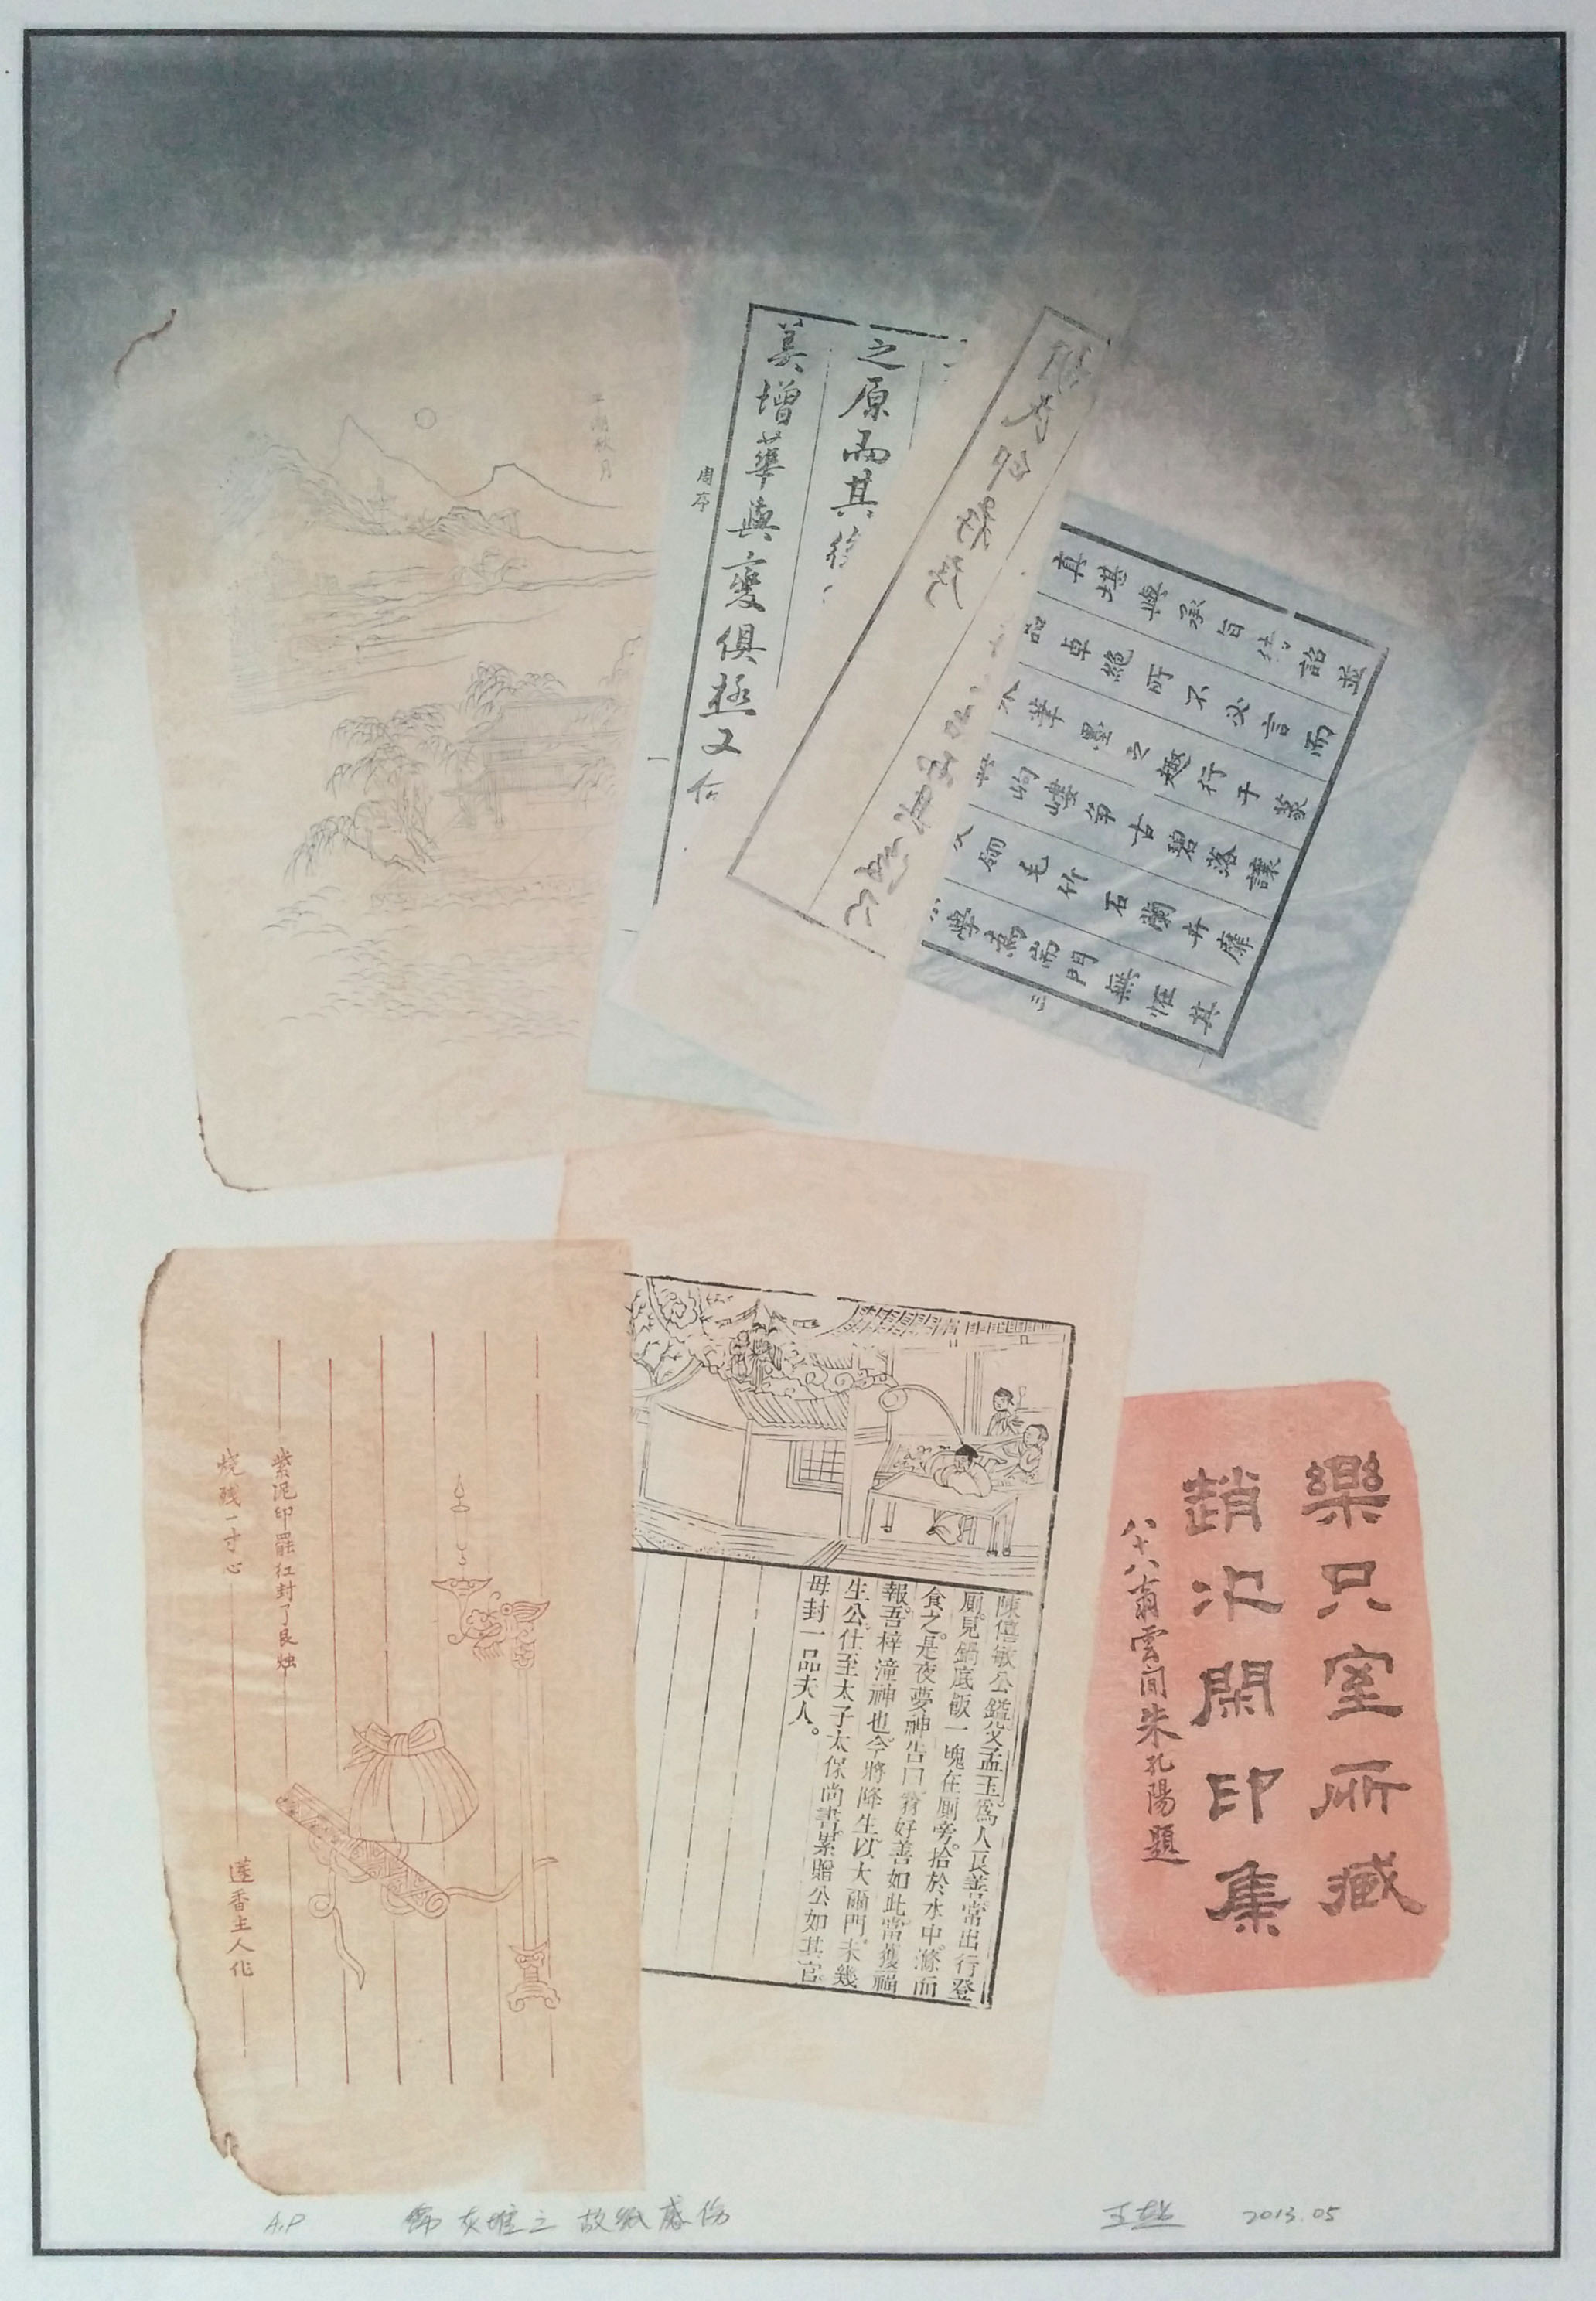 平湖秋月
之原而其
美增華與變俱極又
周序
一
真堪與承旨待詔並
品卓絕所不必言而
筆墨之趣行于篆
岣嶁矛古碧落讓
翎毛竹石蘭卉靡
學為耑門無恠其
三
紫泥印罷紅封了良燭
燒殘一寸心
蓮香主人作
陳僖敏公鎰父孟玉為人良善常出行登
厠見鍋底飯一塊在厠旁拾於水中滌而
食之是夜夢神告曰翁好善如此當獲福
報吾梓潼神也今將降生以大爾門未幾
生公仕至太子太保尚書累贈公如其官
毋封一品夫人。
樂只室所藏
趙次閑印集
八十八翁雲間朱孔陽題
A.P
錦灰堆之 故紙感傷
2013.05